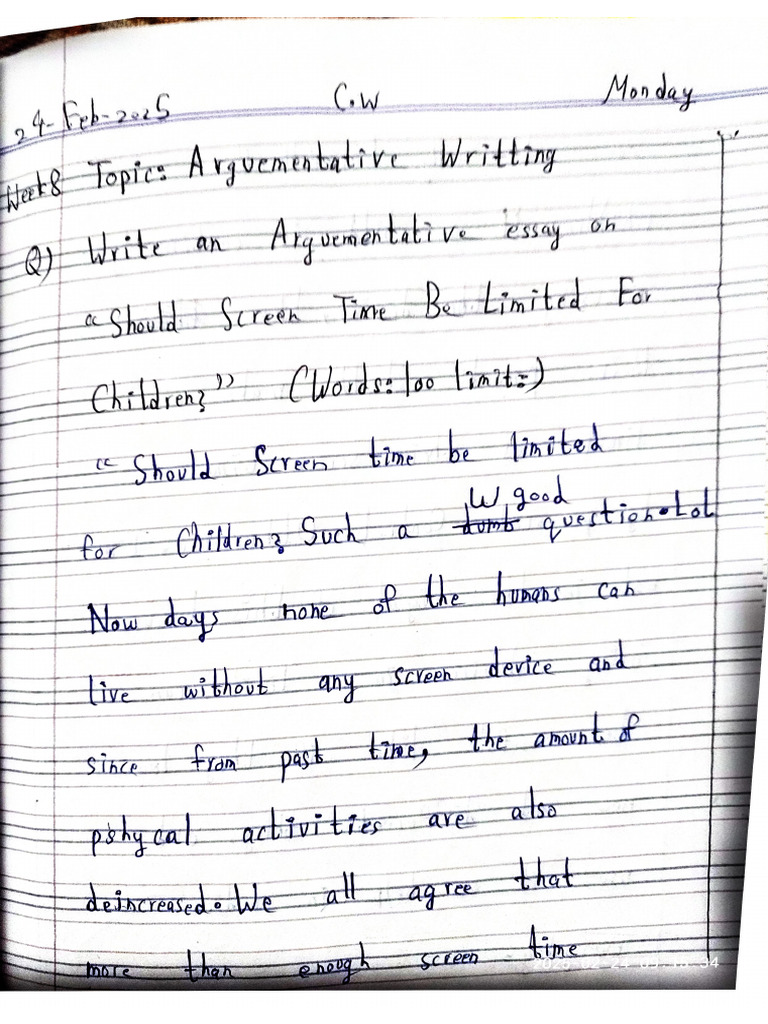 24-Feb-2025 C.W Monday
Week8 Topic: Arguementative Writting
Q) Write an Arguementative essay on
"Should Screen Time Be Limited For
Children?" (Words: 100 limit:)
"Should Screen time be limited
W good
for Children? Such a dumb question. Lol
Now days none of the humans can
live without any screen device and
since from past time, the amount of
pshycal activities are also
deincreased. We all agree that
more than enough screen time